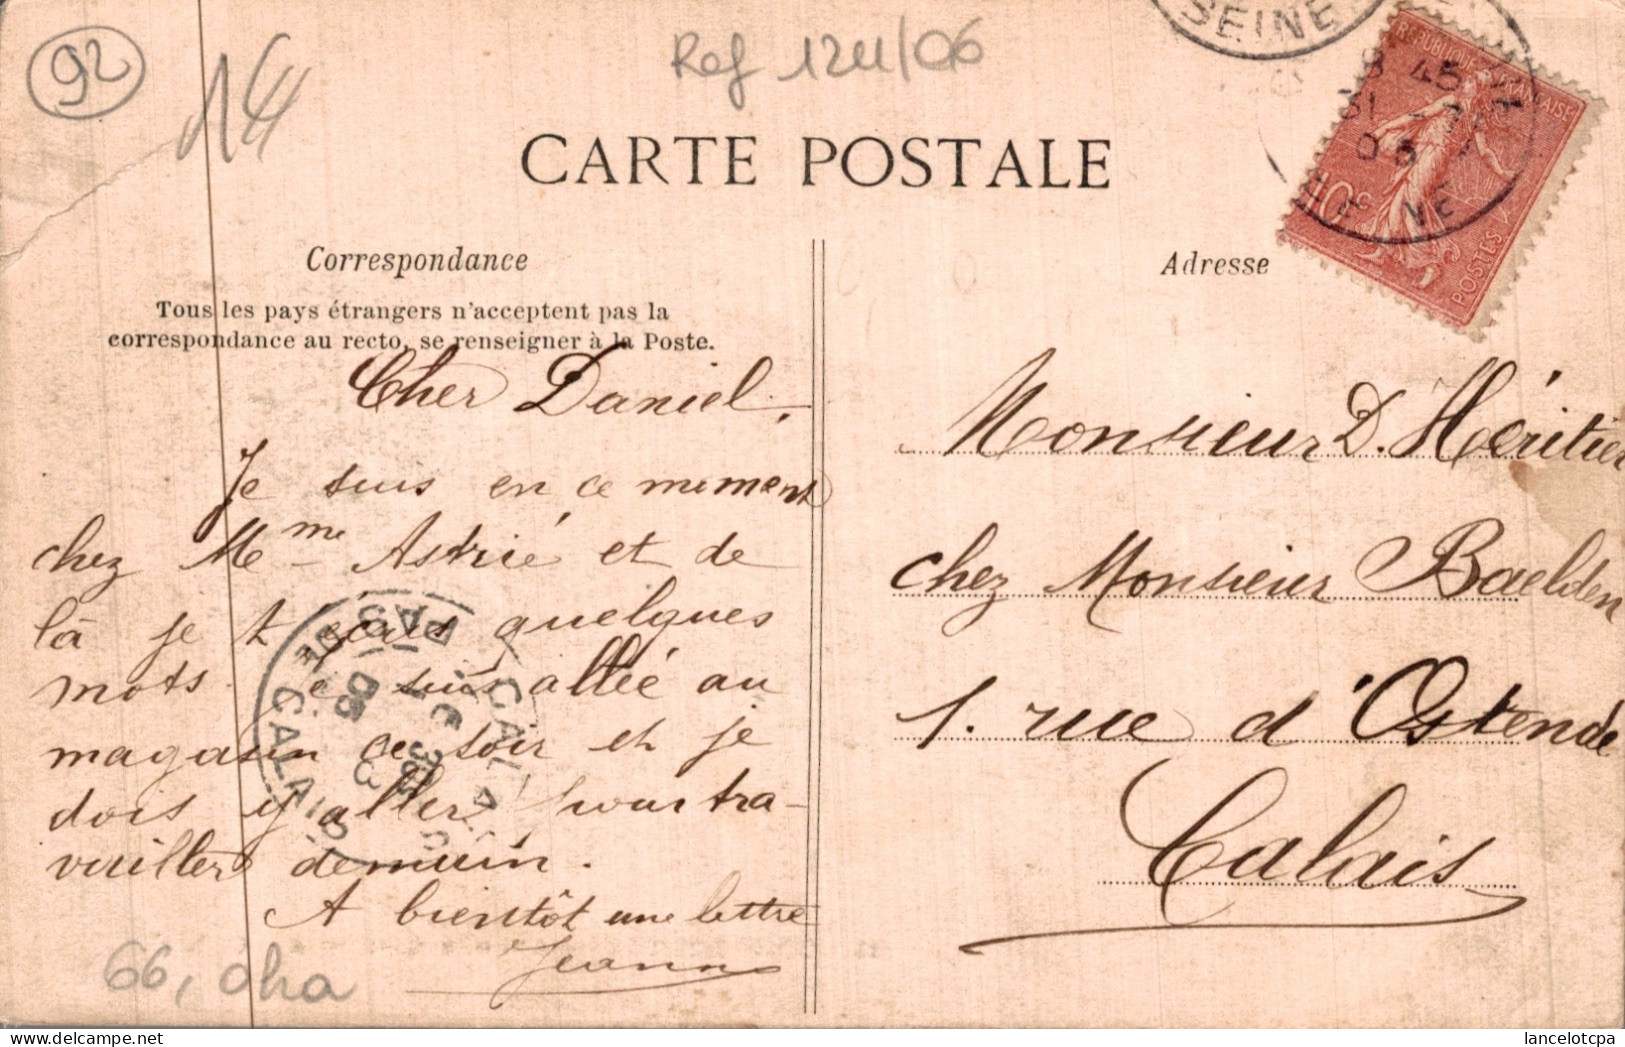 92
14
Ref 1211/06
SEINE
REPUBLIQUE FRANÇAISE
8 45
31
10c
POSTES
CARTE POSTALE
Correspondance
Adresse
Tous les pays étrangers n'acceptent pas la
correspondance au recto, se renseigner à la Poste.
Cher Daniel.
Je suis en ce moment
chez Mme Astrié et de
là je t écris quelques
mots. Je suis allée au
magasin ce soir et je
dois y aller pour tra-
vailler demain.
A bientôt une lettre
Jeanne
Monsieur D. Héritier
chez Monsieur Baelden
1. rue d'Ostende
Calais
CALAIS
PAS DE CALAIS
66, oha
lancelotcpa